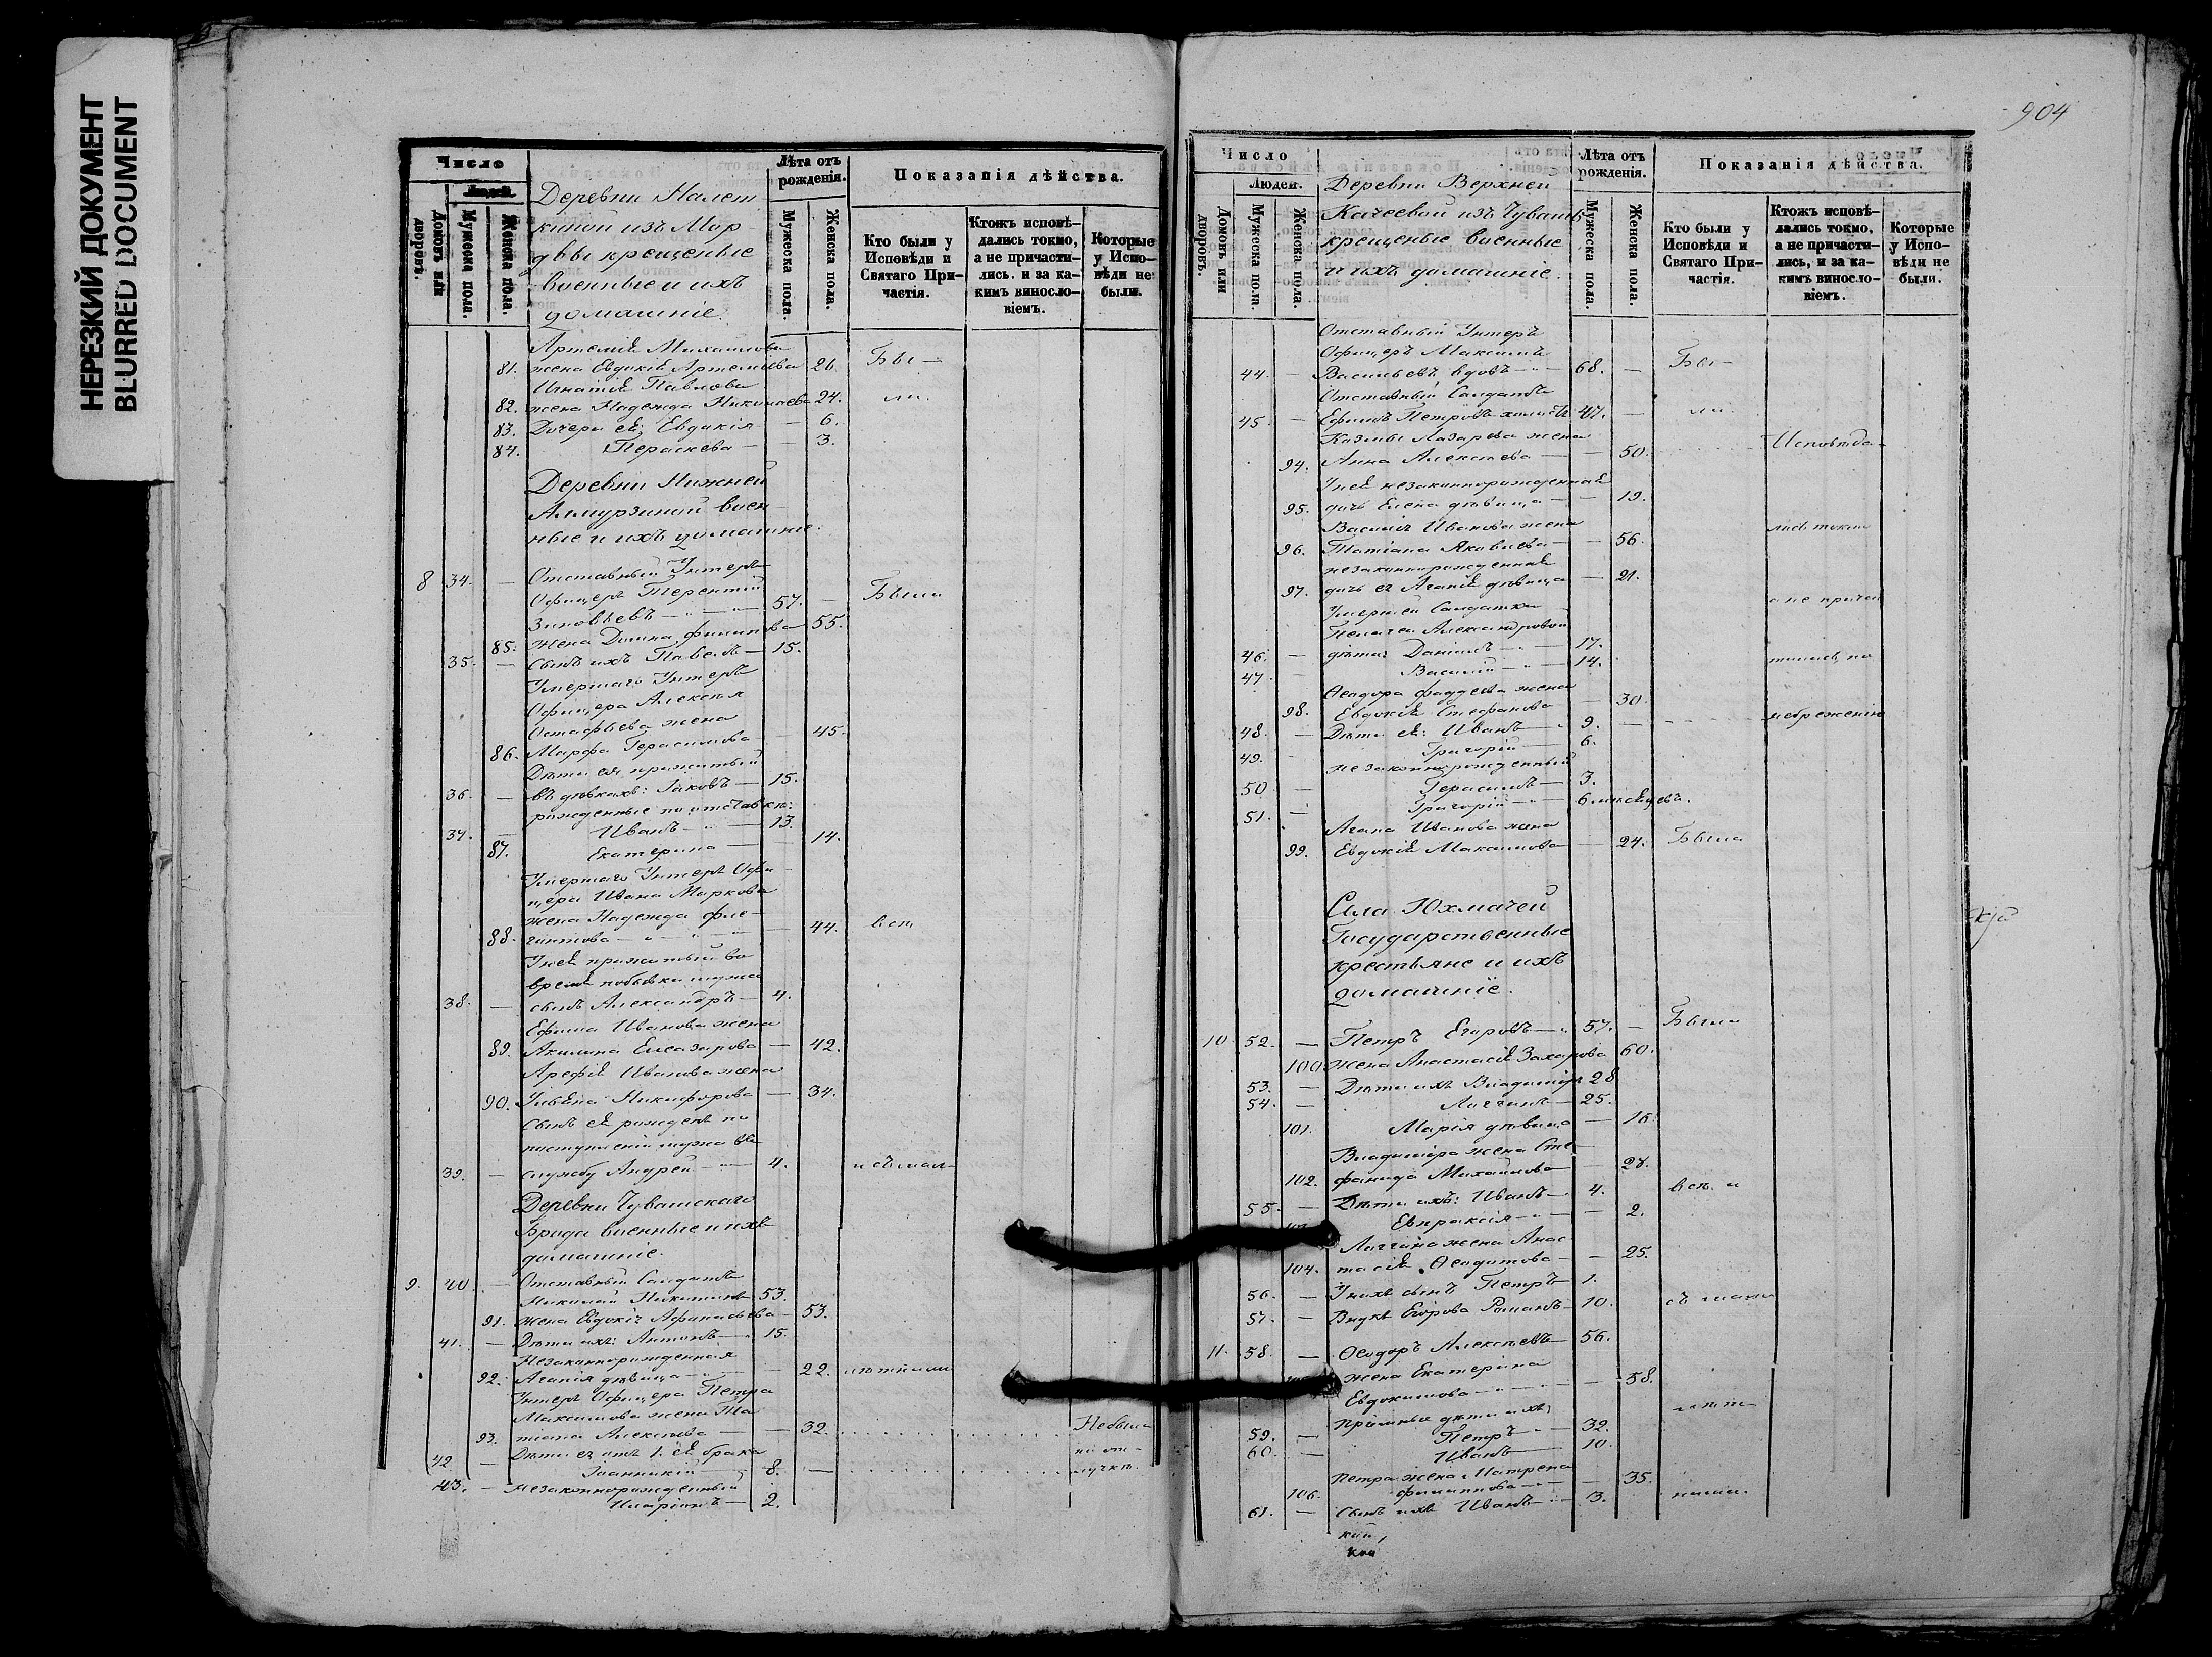 НЕРЕЗКИЙ ДОКУМЕНТ
BLURRED DOCUMENT
Число
Людей.
Домовъ или дворовъ.
Мужеска пола.
Женска пола.
Деревни Налет
киной изъ Мор-
двы крещеные
военные и ихъ
домашніе.
Лѣта отъ рожденія.
Мужеска пола.
Женска пола.
Показанія дѣйства.
Кто были у Исповѣди и Святаго При-частія.
Ктожъ исповѣ-дались токмо, а не причасти-лись. и за ка-кимъ виносло-віемъ.
Которые у Испо-вѣди не были.
Артемія Михайлова
81. жена Евдокія Артемьева 26. Бы-
Игнатія Павлова
82. жена Надежда Николаева 24. ли.
83. Дочери ея: Евдокія — 6.
84. Пераскева — — 3.
Деревни Нижней
Алмурзиной воен-
ные и ихъ домашніе.
8 34. — Отставный Унтеръ
Офицеръ Терентій
Зиновьевъ — 57. — Были
85. Жена Домна Филипова 55.
35. — Сынъ ихъ Павелъ — 15.
Умершаго Унтеръ
Офицера Алексѣя
Остафьева жена
86. Марфа Герасимова — 45.
Дѣти ея прижитый
36. — въ дѣвкахъ: Іаковъ — 15.
рожденные по отставкѣ:
37. — Иванъ — 13.
87. Екатерина — — 14.
Умершаго Унтеръ Офи-
цера Ивана Маркова
жена Надежда Фле-
88. гонтова — — 44. всѣ
У ней прижитый во
время побывки мужа
38. — сынъ Александръ — 4.
Ефима Иванова жена
89. Акилина Елеазарова — 42.
Арефія Иванова жена
90. Ульяна Никифорова — 34.
Сынъ ея рожденъ по
поступленіи мужа въ
39. — службу Андрей — 4. и съ мал-
Деревни Чувашскаго
Брода военные и ихъ
домашніе.
9. 40. — Отставный Солдатъ
Николай Никитинъ 53.
91. жена Евдокія Афанасьева — 53.
41. — Дѣти ихъ: Антонъ — 15.
Незаконнорожденная
92. Агапія дѣвица — — 22. лѣтними
Унтеръ Офицера Петра
Максимова жена Та
93. тіана Алексѣева — — 32. Небыли
42 — Дѣти ея отъ 1. ея брака по от-
Іоанникій — 8. — лучкѣ.
43. — Незаконнорожденный
Иларіонъ — 2.
904
Число
Людей.
Домовъ или дворовъ.
Мужеска пола.
Женска пола.
Деревни Верхней
Качеевой изъ Чувашъ
крещеные военные
и ихъ домашніе.
Лѣта отъ рожденія.
Мужеска пола.
Женска пола.
Показанія дѣйства.
Кто были у Исповѣди и Святаго При-частія.
Ктожъ исповѣ-дались токмо, а не причасти-лись, и за ка-кимъ винословіемъ.
Которые у Испо-вѣди не были.
Отставный Унтеръ
Офицеръ Максимъ
44. — Васильевъ вдовъ — 68. — Бы-
Отставный Солдатъ
45. — Ефимъ Петровъ 47. — ли.
Казмы Лазарева жена
94. Анна Алексѣева — — 50. Исповѣда-
У ней незаконнорожденная
95. дочь Елена дѣвица — — 19.
Василія Иванова жена лись токмо
96. Татіана Яковлева — — 56.
незаконнорожденная
97. дочь ея Агапія дѣвица — 21.
Умершей Солдатки а не прича
Пелагеи Александровой
46. — дѣти: Даніилъ — 17.
47. — Василій — 14. тились, по
Ѳеодора Фаддеева жена
98. Евдокія Стефанова — 30.
48. — Дѣти ея: Иванъ — 9. — небреженію
49. — Григорій — 6.
незаконнорожденный
50 — Герасимъ — 3.
51. — Григорій — 6 мѣсяцевъ.
Агапа Иванова жена
99. Евдокія Максимова — 24. Была
Села Юхмачей
Государственные
крестьяне и ихъ
домашніе.
10. 52. — Петръ Егоровъ — 57. — Были
100 жена Анастасія Захарова 60.
53. — Дѣти ихъ Владиміръ 28
54. — Логгинъ — 25.
101. Марія дѣвица — 16.
Владиміра жена Сте
102. фанида Михайлова — 28.
55. — Дѣти ихъ: Иванъ — 4. всѣ. и
Евпраксія — — 2.
Логгина жена Анас
104. тасія Ѳеодотова — — 25.
56. — У нихъ сынъ Петръ 1.
57. — Внукъ Егорова Романъ — 10. съ мало
11. 58. — Ѳеодоръ Алексѣевъ — 56.
жена Екатерина
Евдокимова — — 58.
Пріемные дѣти ихъ: лѣтн
59. — Петръ — 32.
60. — Иванъ — 10.
Петра жена Матрена
106. Филиппова — — 35.
61. — Сынъ ихъ Иванъ — 3. ними.